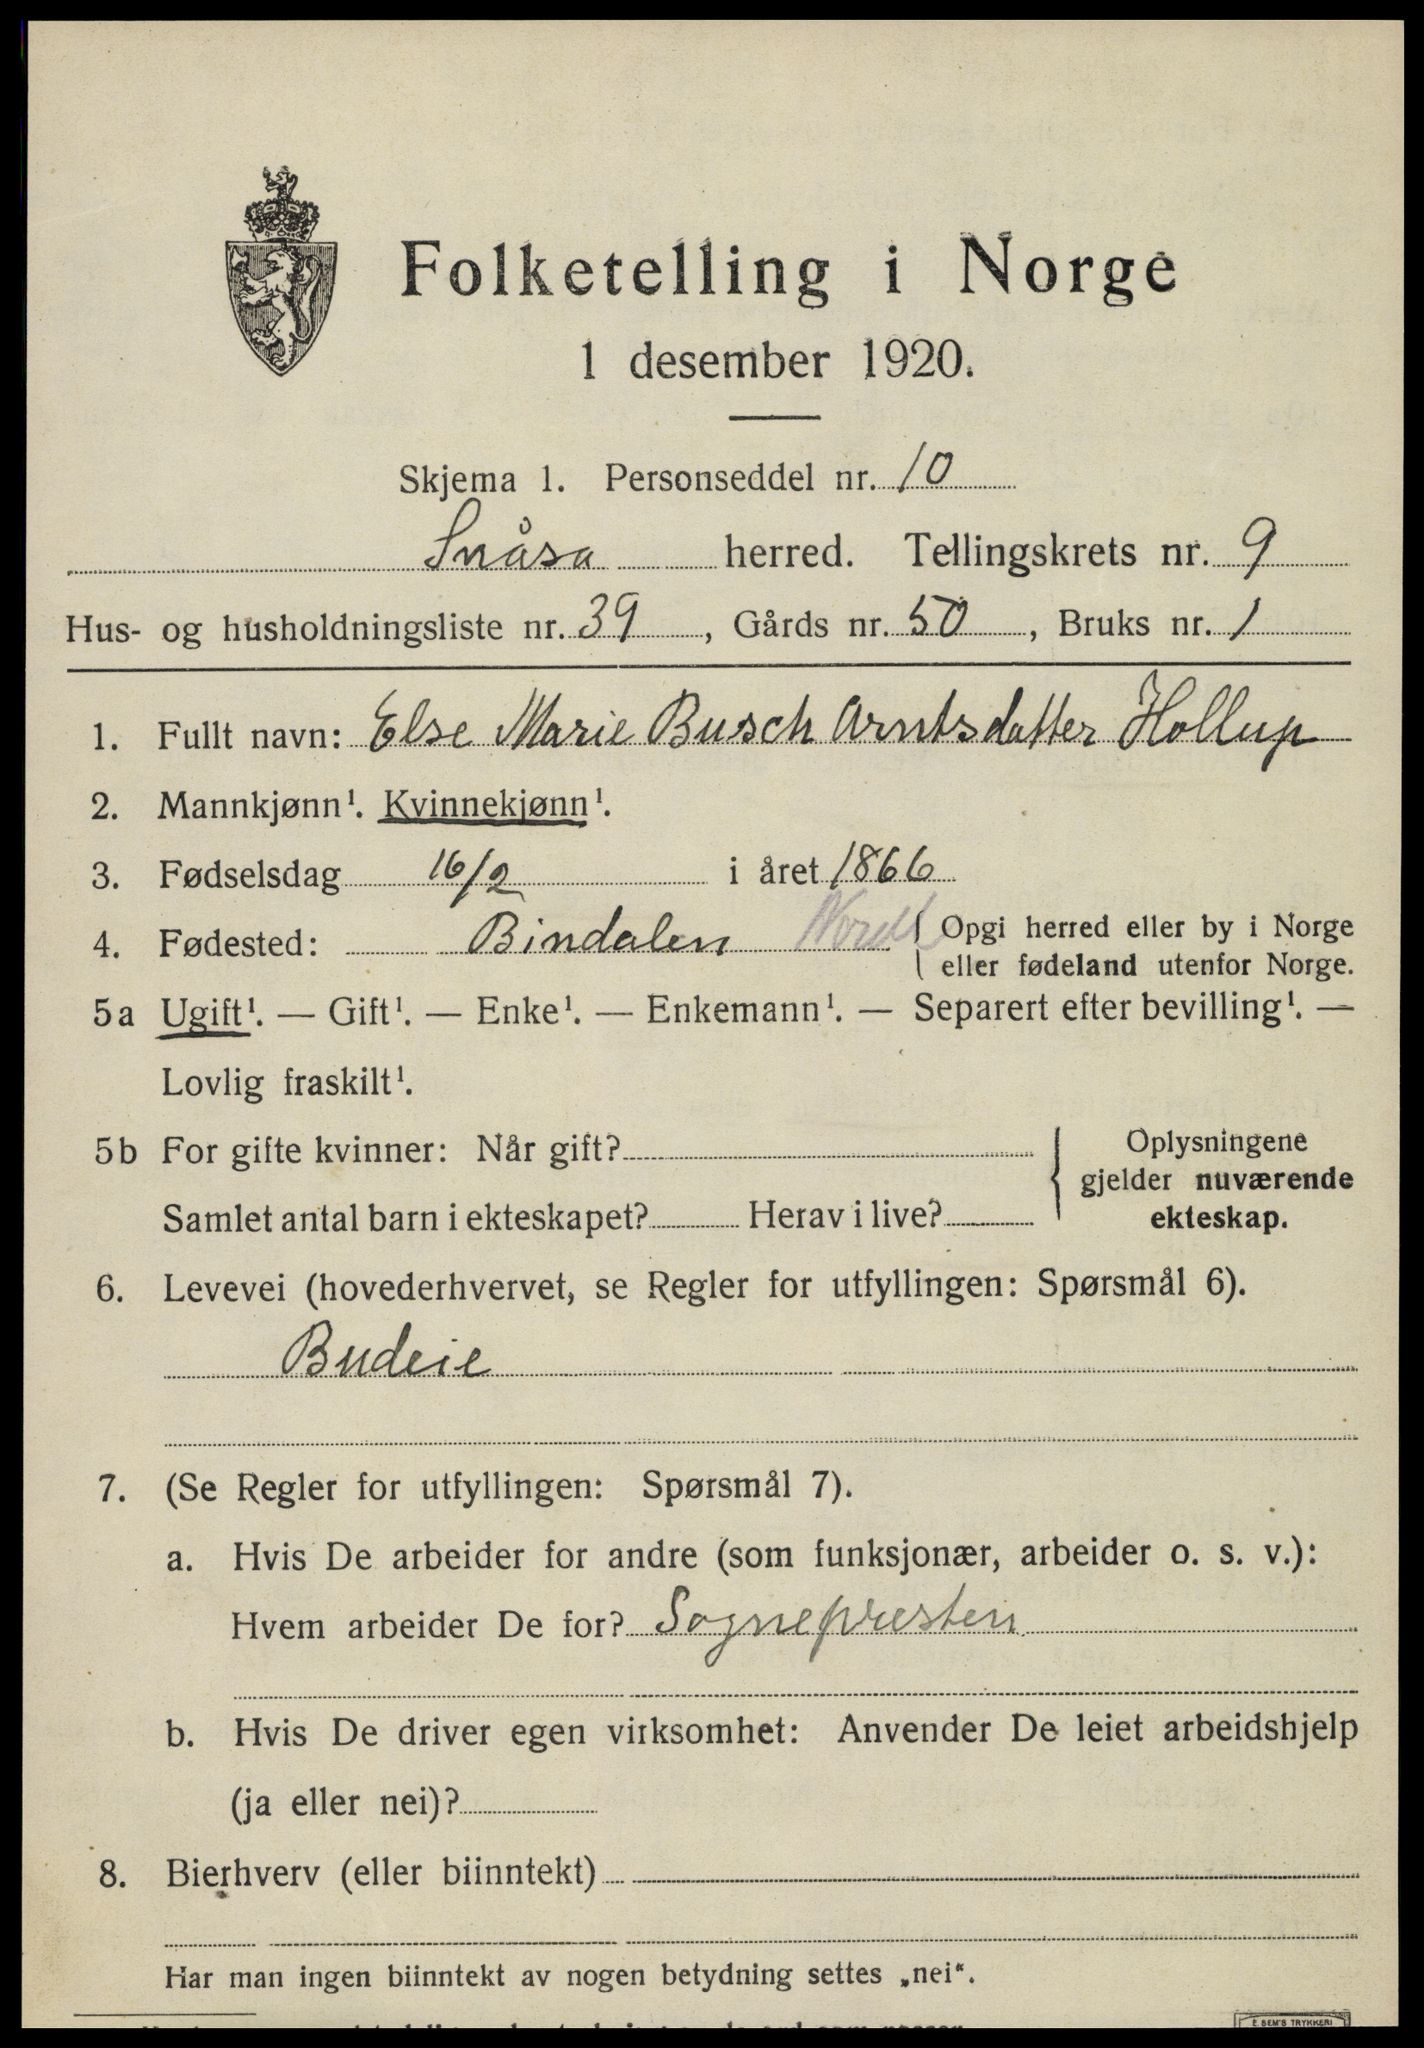 Folketelling i Norge
1 desember 1920.
Skjema 1. Personseddel nr. 10
Snåsa herred. Tellingskrets nr. 9
Hus- og husholdningsliste nr. 39, Gårds nr. 50, Bruks nr. 1
1. Fullt navn: Else Marie Busch Arntsdatter Hollup
2. Mannkjønn¹. Kvinnekjønn¹.
3. Fødselsdag 16/2 i året 1866
4. Fødested: Bindalen Nordl Opgi herred eller by i Norge
eller fødeland utenfor Norge.
5a Ugift¹. — Gift¹. — Enke¹. — Enkemann¹. — Separert efter bevilling¹. —
Lovlig fraskilt¹.
5b For gifte kvinner: Når gift?
Samlet antal barn i ekteskapet? Herav i live?
Oplysningene
gjelder nuværende
ekteskap.
6. Levevei (hovederhvervet, se Regler for utfyllingen: Spørsmål 6).
Budeie
7. (Se Regler for utfyllingen: Spørsmål 7).
a. Hvis De arbeider for andre (som funksjonær, arbeider o. s. v.):
Hvem arbeider De for? Sognepresten
b. Hvis De driver egen virksomhet: Anvender De leiet arbeidshjelp
(ja eller nei)?
8. Bierhverv (eller biinntekt)
Har man ingen biinntekt av nogen betydning settes „nei“.
E. SEM'S TRYKKERI